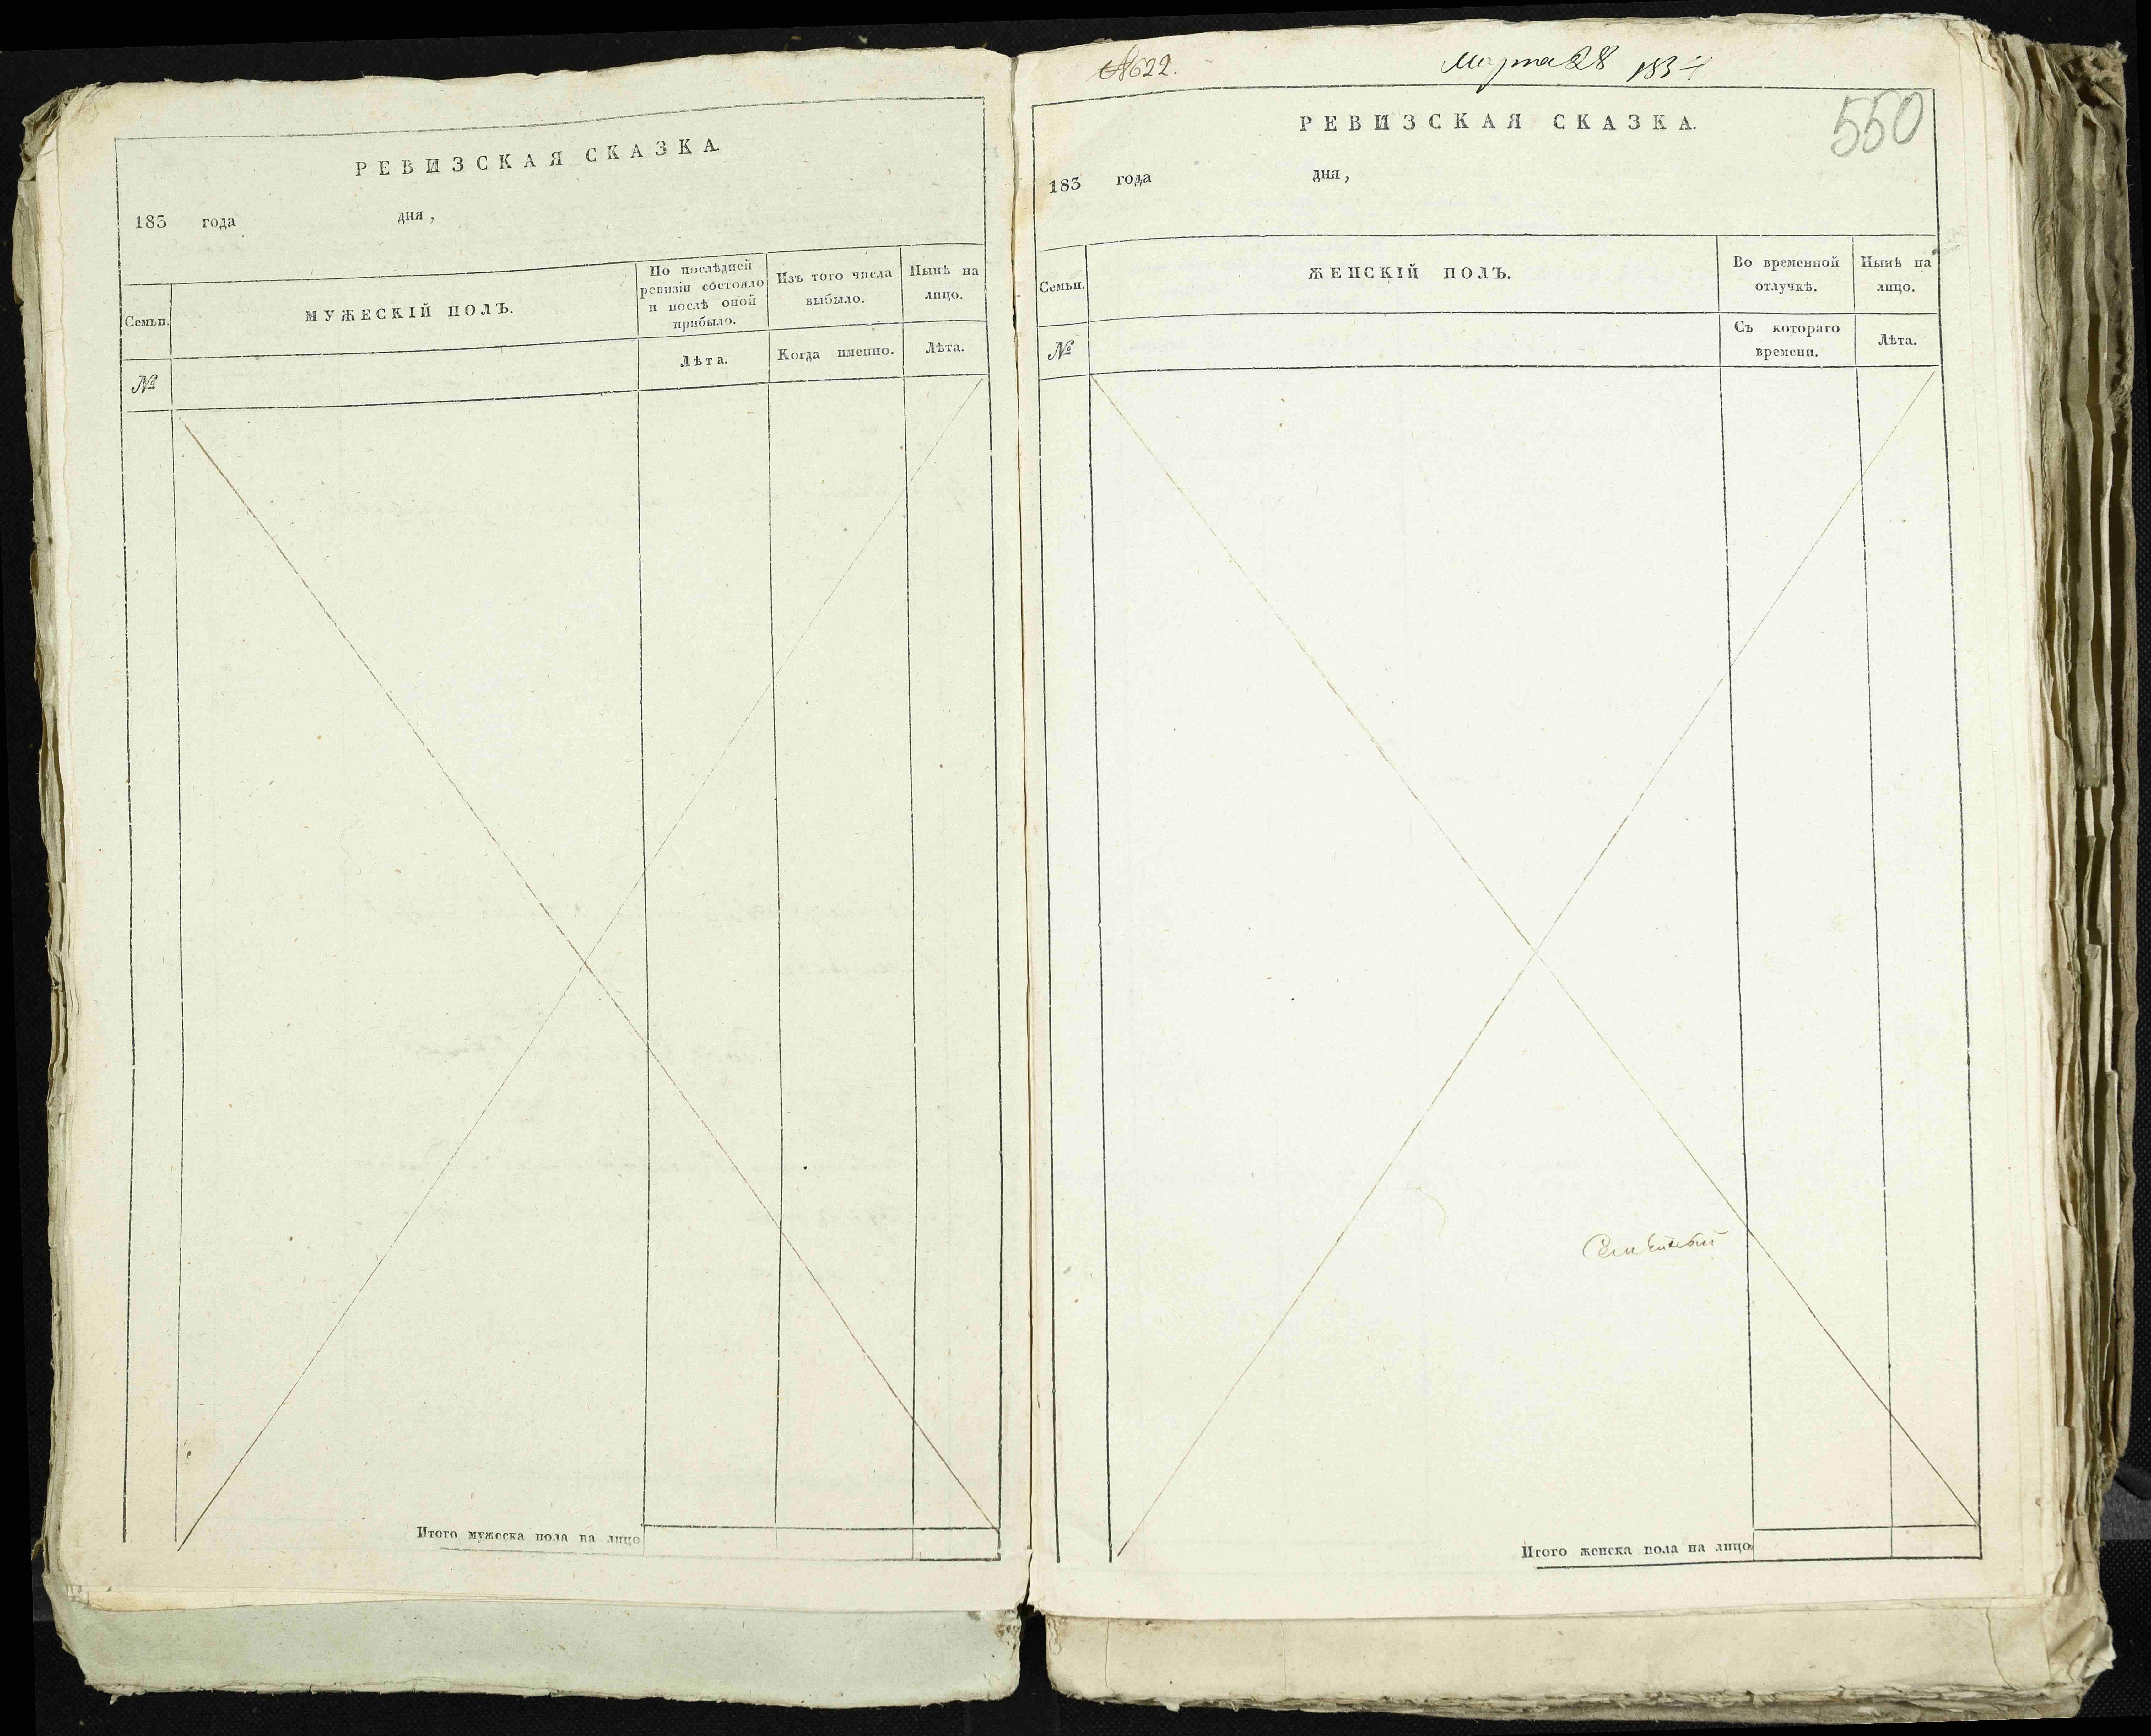 РЕВИЗСКАЯ СКАЗКА.
183 года дня,
Семьи.
МУЖЕСКІЙ ПОЛЪ.
По послѣдней
ревизіи состояло
и послѣ оной
прибыло.
Изъ того числа
выбыло.
Нынѣ на
лицо.
№
Лѣта.
Когда именно.
Лѣта.
Итого мужеска пола на лицо
№622.
Марта 28 1834
550
РЕВИЗСКАЯ СКАЗКА.
183 года дня,
Семьи.
ЖЕНСКІЙ ПОЛЪ.
Во временной
отлучкѣ.
Нынѣ на
лицо.
№
Съ котораго
времени.
Лѣта.
Итого женска пола на лицо